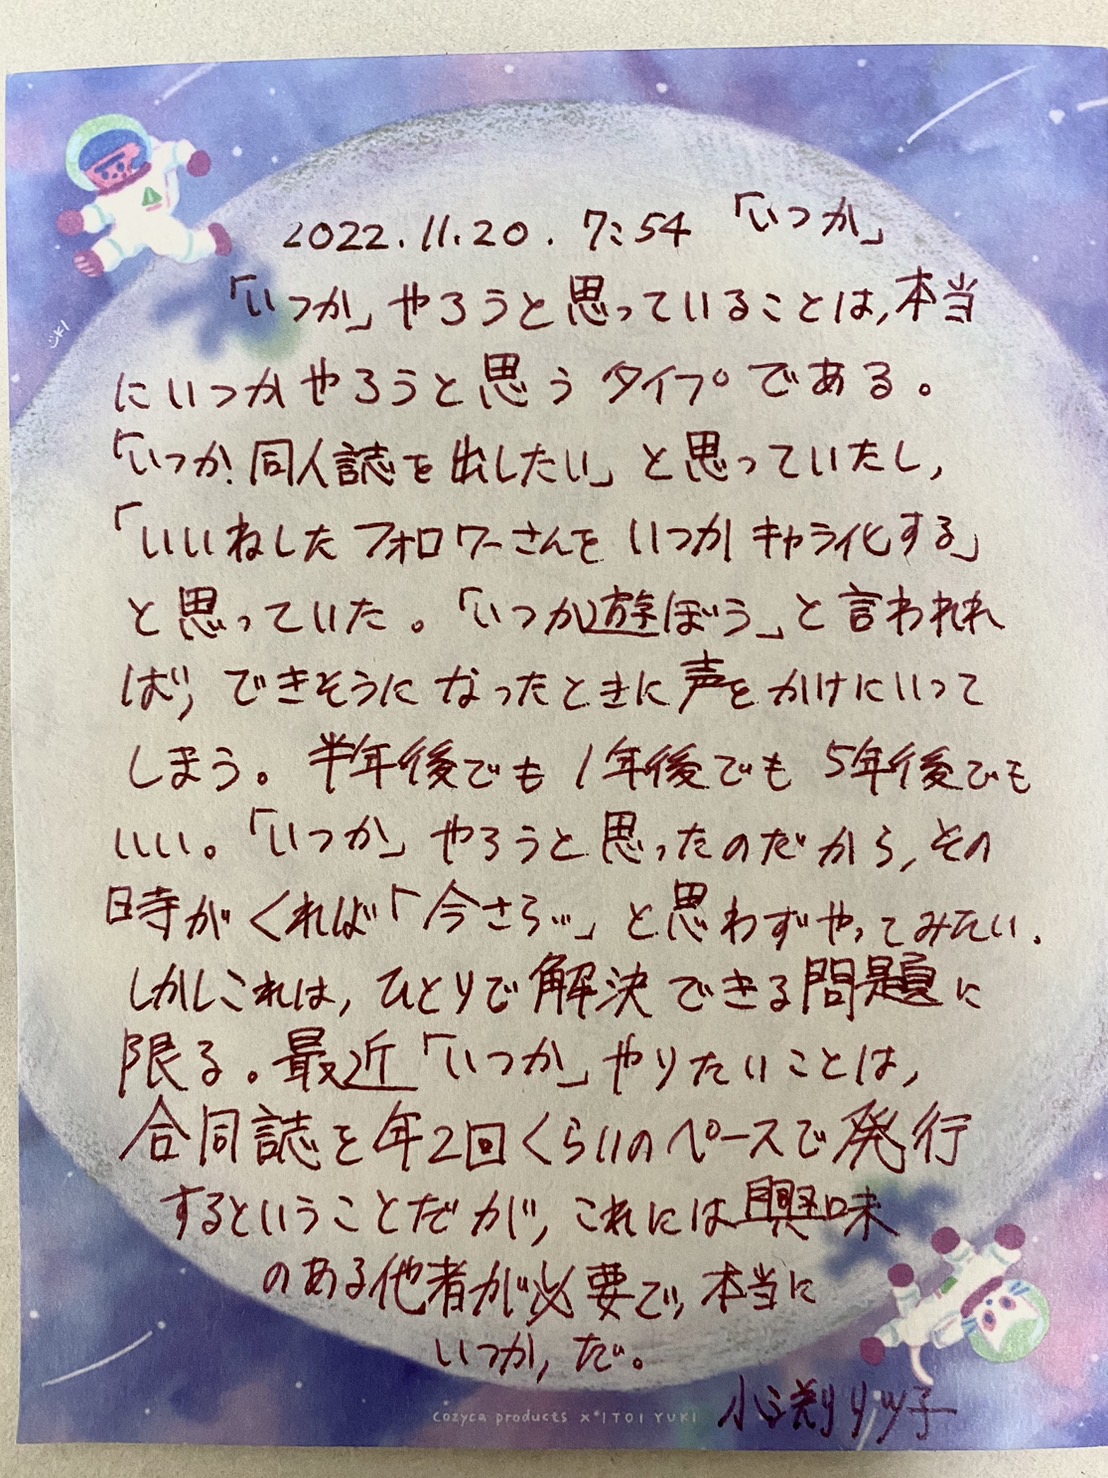 2022.11.20. 7:54 「いつか」
「いつか」やろうと思っていることは,本当
にいつかやろうと思うタイプである。
「いつか同人誌を出したい」と思っていたし,
「いいねしたフォロワーさんをいつかキャラ化する」
と思っていた。「いつか遊ぼう」と言われれ
ば,できそうになったときに声をかけにいって
しまう。半年後でも1年後でも5年後でも
いい。「いつか」やろうと思ったのだから,その
時がくれば「今さら…」と思わずやってみたい.
しかしこれは,ひとりで解決できる問題に
限る。最近「いつか」やりたいことは,
合同誌を年2回くらいのペースで発行
するということだが,これには興味
のある他者が必要で,本当に
いつか,だ。
リツ子
cozyca products × ITOI YUKI